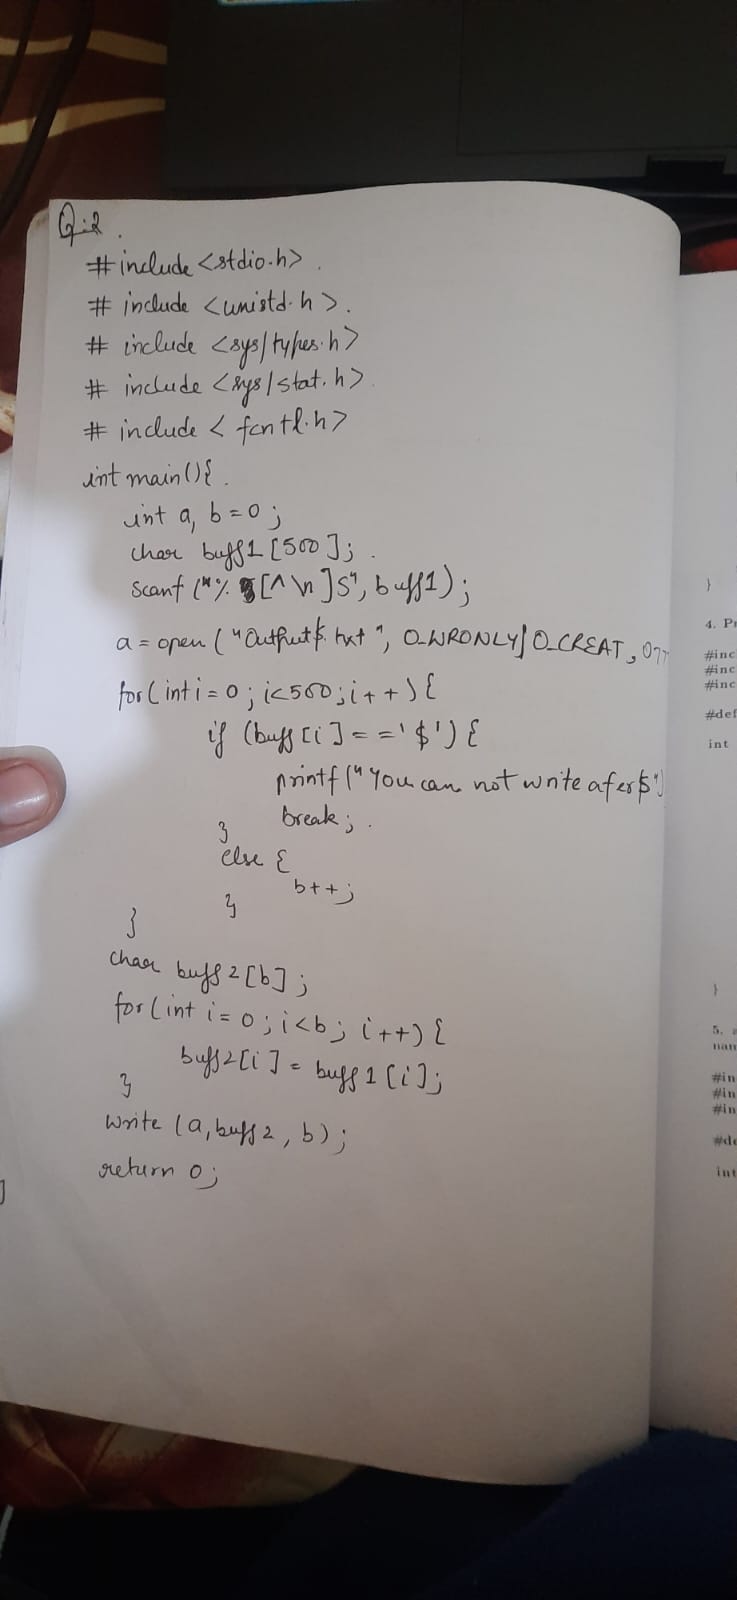 Q:2.
#include <stdio.h>.
# include <unistd.h>.
# include <sys/types.h>
# include <sys/stat.h>.
# include < fcntl.h>
int main(){.
int a, b=0;
char buff1 [500];.
Scanf ("% [^\n]S", buff1);
a = open ("Output$.txt", O_WRONLY|O_CREAT, 077
for(int i = 0; i<500; i++){
if (buff[i]=='$') {
printf("You can not write afer $")
break;.
}
else {
b++;
}
}
char buff2[b];
for(int i=0; i<b; i++) {
buff2[i] = buff1[i];
}
Write (a, buff2, b);
return 0;
}
4. P
#inc
#inc
#inc
#def
int
}
5.
nam
#in
#in
#in
#de
int